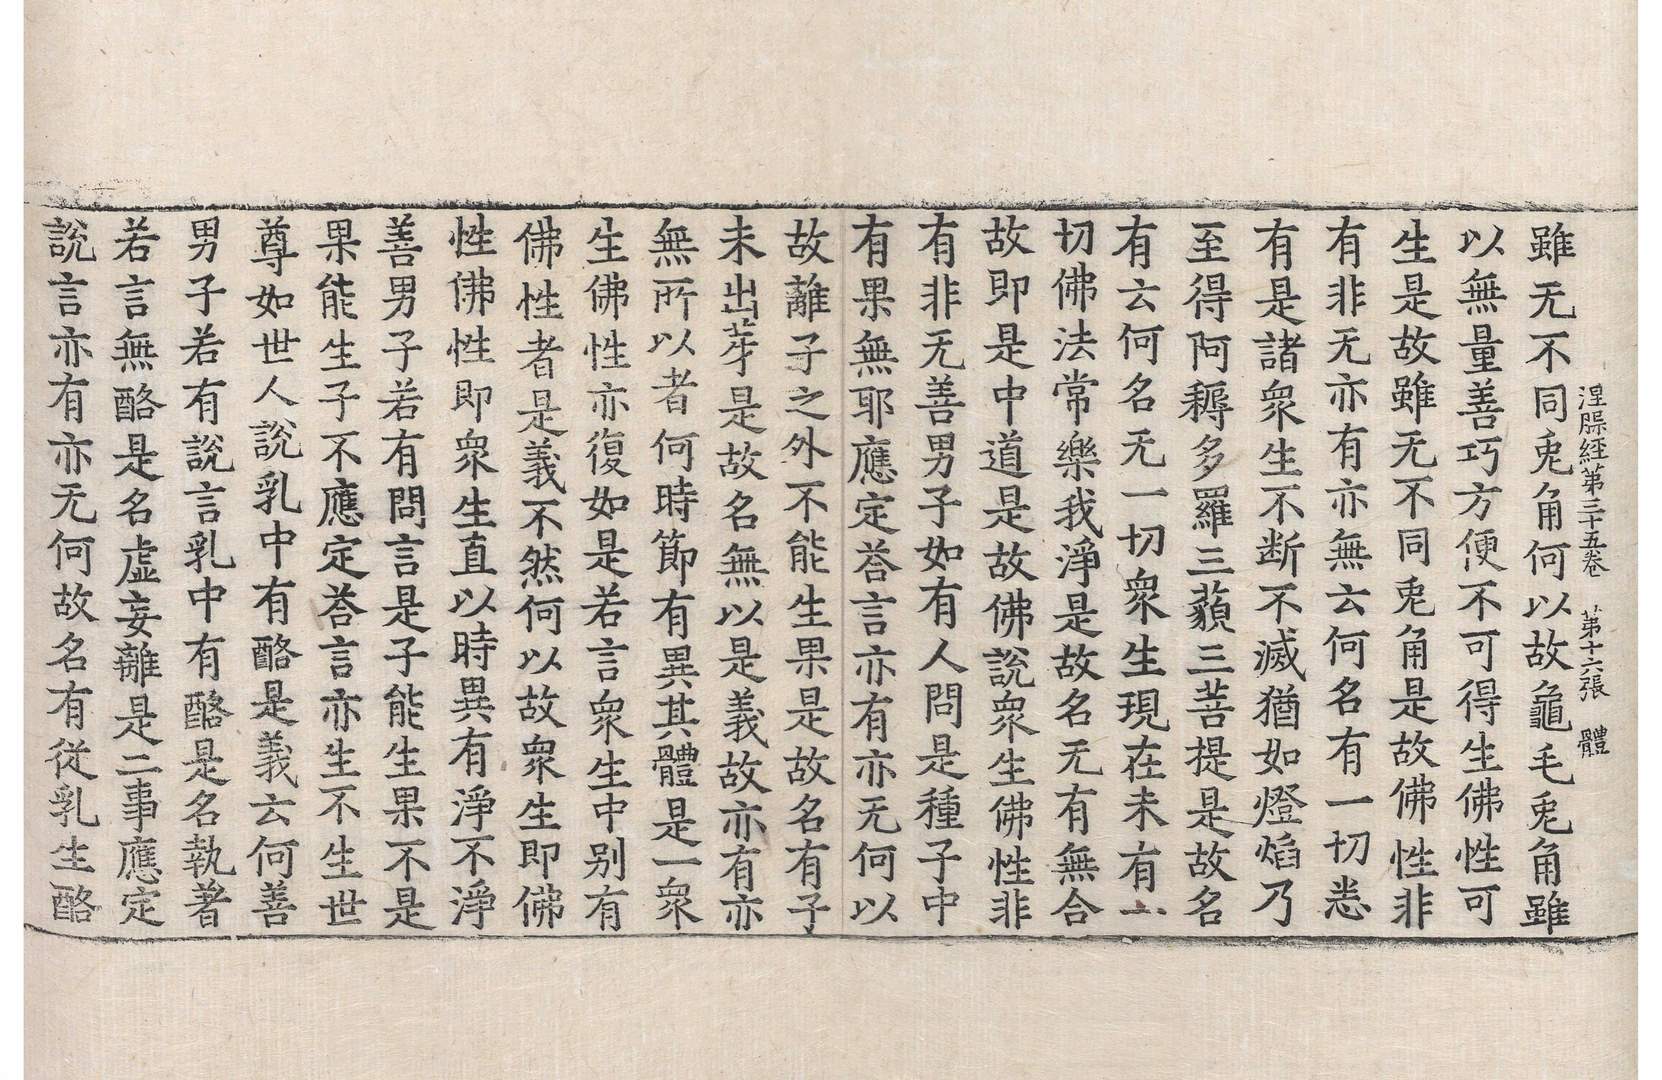 涅槃經第三十五卷 第十六張 體
雖无不同兎角何以故龜毛兎角雖
以無量善巧方便不可得生佛性可
生是故雖无不同兎角是故佛性非
有非无亦有亦無云何名有一切悉
有是諸衆生不断不滅猶如燈焰乃
至得阿耨多羅三藐三菩提是故名
有云何名无一切衆生現在未有一
切佛法常樂我淨是故名无有無合
故即是中道是故佛說衆生佛性非
有非无善男子如有人問是種子中
有果無耶應定荅言亦有亦无何以
故離子之外不能生果是故名有子
未出芽是故名無以是義故亦有亦
無所以者何時節有異其體是一衆
生佛性亦復如是若言衆生中别有
佛性者是義不然何以故衆生即佛
性佛性即衆生直以時異有淨不淨
善男子若有問言是子能生果不是
果能生子不應定荅言亦生不生世
尊如世人說乳中有酪是義云何善
男子若有說言乳中有酪是名執著
若言無酪是名虛妄離是二事應定
說言亦有亦无何故名有從乳生酪